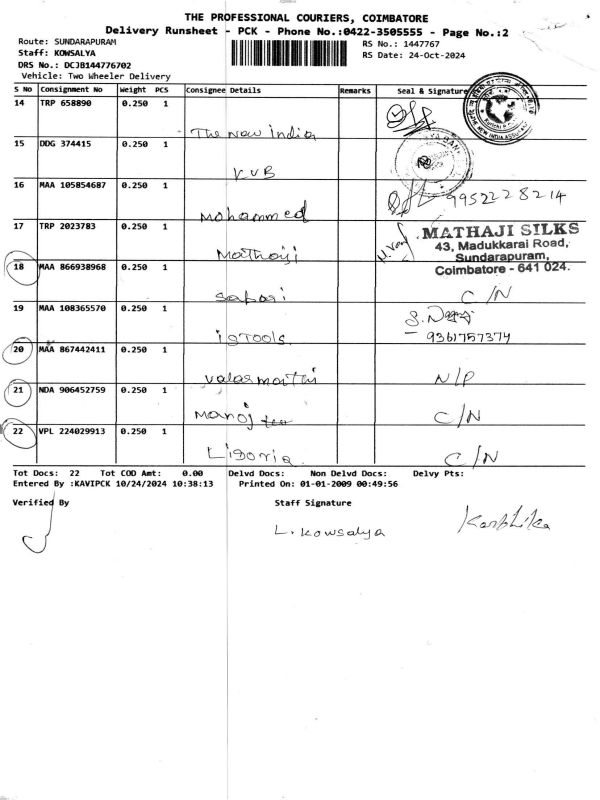 THE PROFESSIONAL COURIERS, COIMBATORE
Delivery Runsheet - PCK - Phone No.:0422-3505555 - Page No.:2
Route: SUNDARAPURAM
Staff: KOWSALYA
DRS No.: DCJB144776702
Vehicle: Two Wheeler Delivery
RS No.: 1447767
RS Date: 24-Oct-2024
S No Consignment No Weight PCS Consignee Details Remarks Seal & Signature
14 TRP 658890 0.250 1 The New India
15 DDG 374415 0.250 1 KVB
16 MAA 105854687 0.250 1 Mohammed 9952228214
17 TRP 2023783 0.250 1 Mathaji
MATHAJI SILKS
43, Madukkarai Road,
Sundarapuram,
Coimbatore - 641 024.
18 MAA 866938968 0.250 1 Safari C/N
19 MAA 108365570 0.250 1 igTools 9361757374
20 MAA 867442411 0.250 1 Valarmathi N/P
21 NDA 906452759 0.250 1 Manoj C/N
22 VPL 224029913 0.250 1 Ligoria C/N
Tot Docs: 22 Tot COD Amt: 0.00 Delvd Docs: Non Delvd Docs: Delvy Pts:
Entered By :KAVIPCK 10/24/2024 10:38:13 Printed On: 01-01-2009 00:49:56
Verified By Staff Signature
L. Kowsalya Karthika